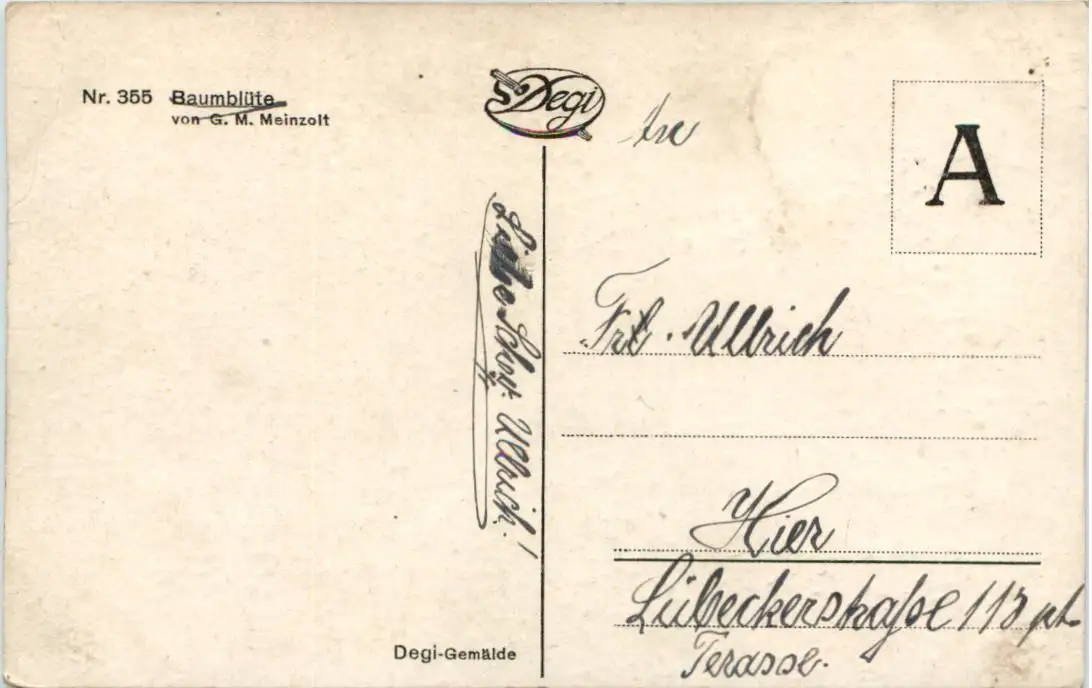 Nr. 355 Baumblüte
von G. M. Meinzolt
Degi
A
Frl. Ullrich
Hier
Lübeckerstraße 113 pt.
Terasse.
Liebe Ullrich!
Degi-Gemälde